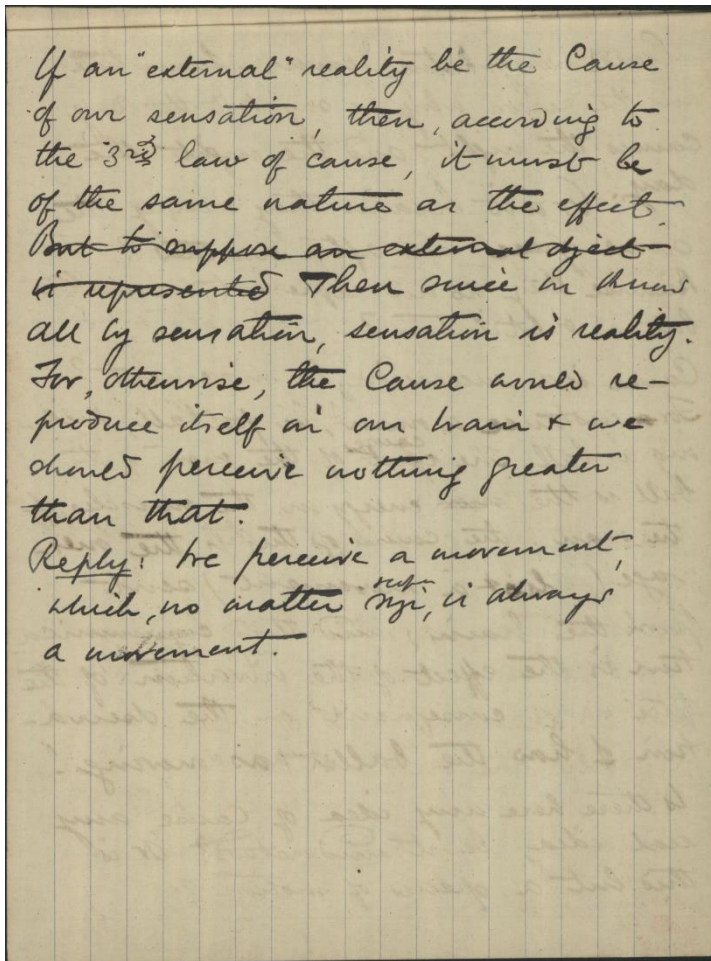 If an "external" reality be the Cause
of our sensation, then, according to
the 3rd law of cause, it must be
of the same nature as the effect.
But to suppose an external object
is represented Then since we know
all by sensation, sensation is reality.
For, otherwise, the Cause would re-
produce itself in our brain & we
should perceive nothing greater
than that.
Reply: We perceive a movement,
which, no matter size, is always
a movement.